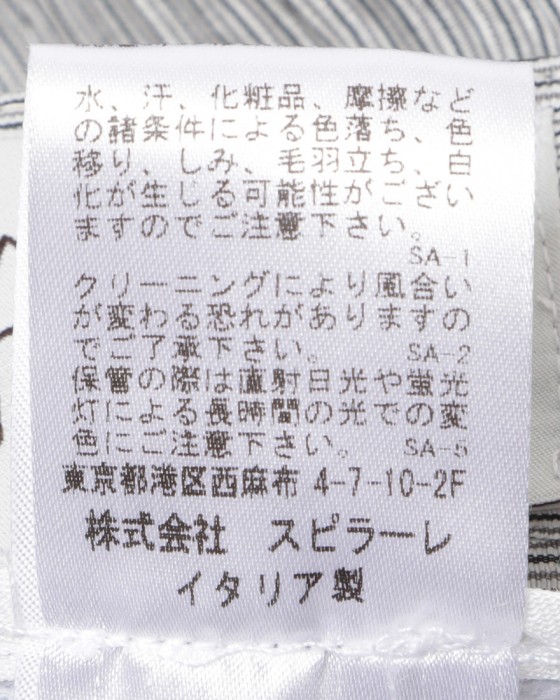 水、汗、化粧品、摩擦など
の諸条件による色落ち、色
移り、しみ、毛羽立ち、白
化が生じる可能性がござい
ますのでご注意下さい。
SA-1
クリーニングにより風合い
が変わる恐れがありますの
でご了承下さい。 SA-2
保管の際は直射日光や蛍光
灯による長時間の光での変
色にご注意下さい。 SA-5
東京都港区西麻布 4-7-10-2F
株式会社 スピラーレ
イタリア製